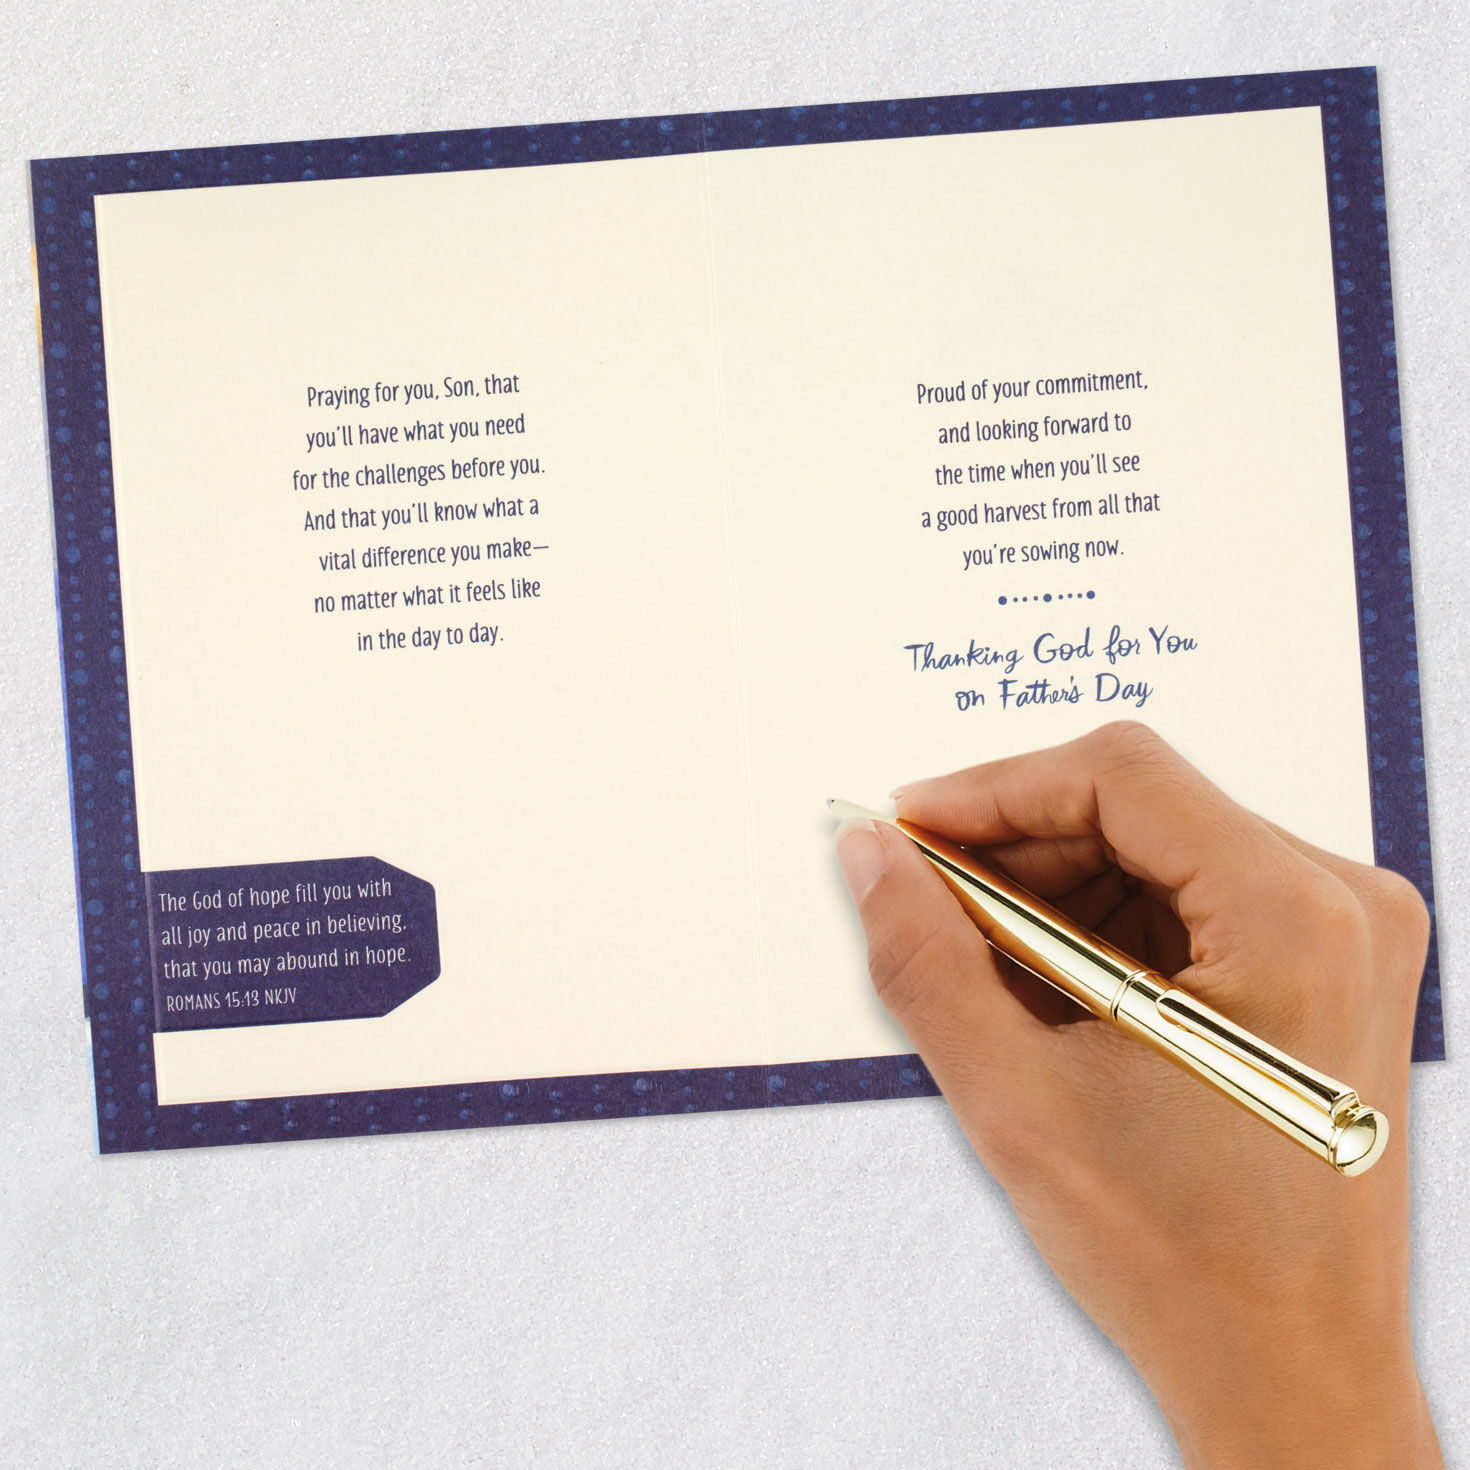 Praying for you, Son, that
you'll have what you need
for the challenges before you.
And that you'll know what a
vital difference you make—
no matter what it feels like
in the day to day.
The God of hope fill you with
all joy and peace in believing,
that you may abound in hope.
ROMANS 15:13 NKJV
Proud of your commitment,
and looking forward to
the time when you'll see
a good harvest from all that
you're sowing now.
Thanking God for You
on Father's Day